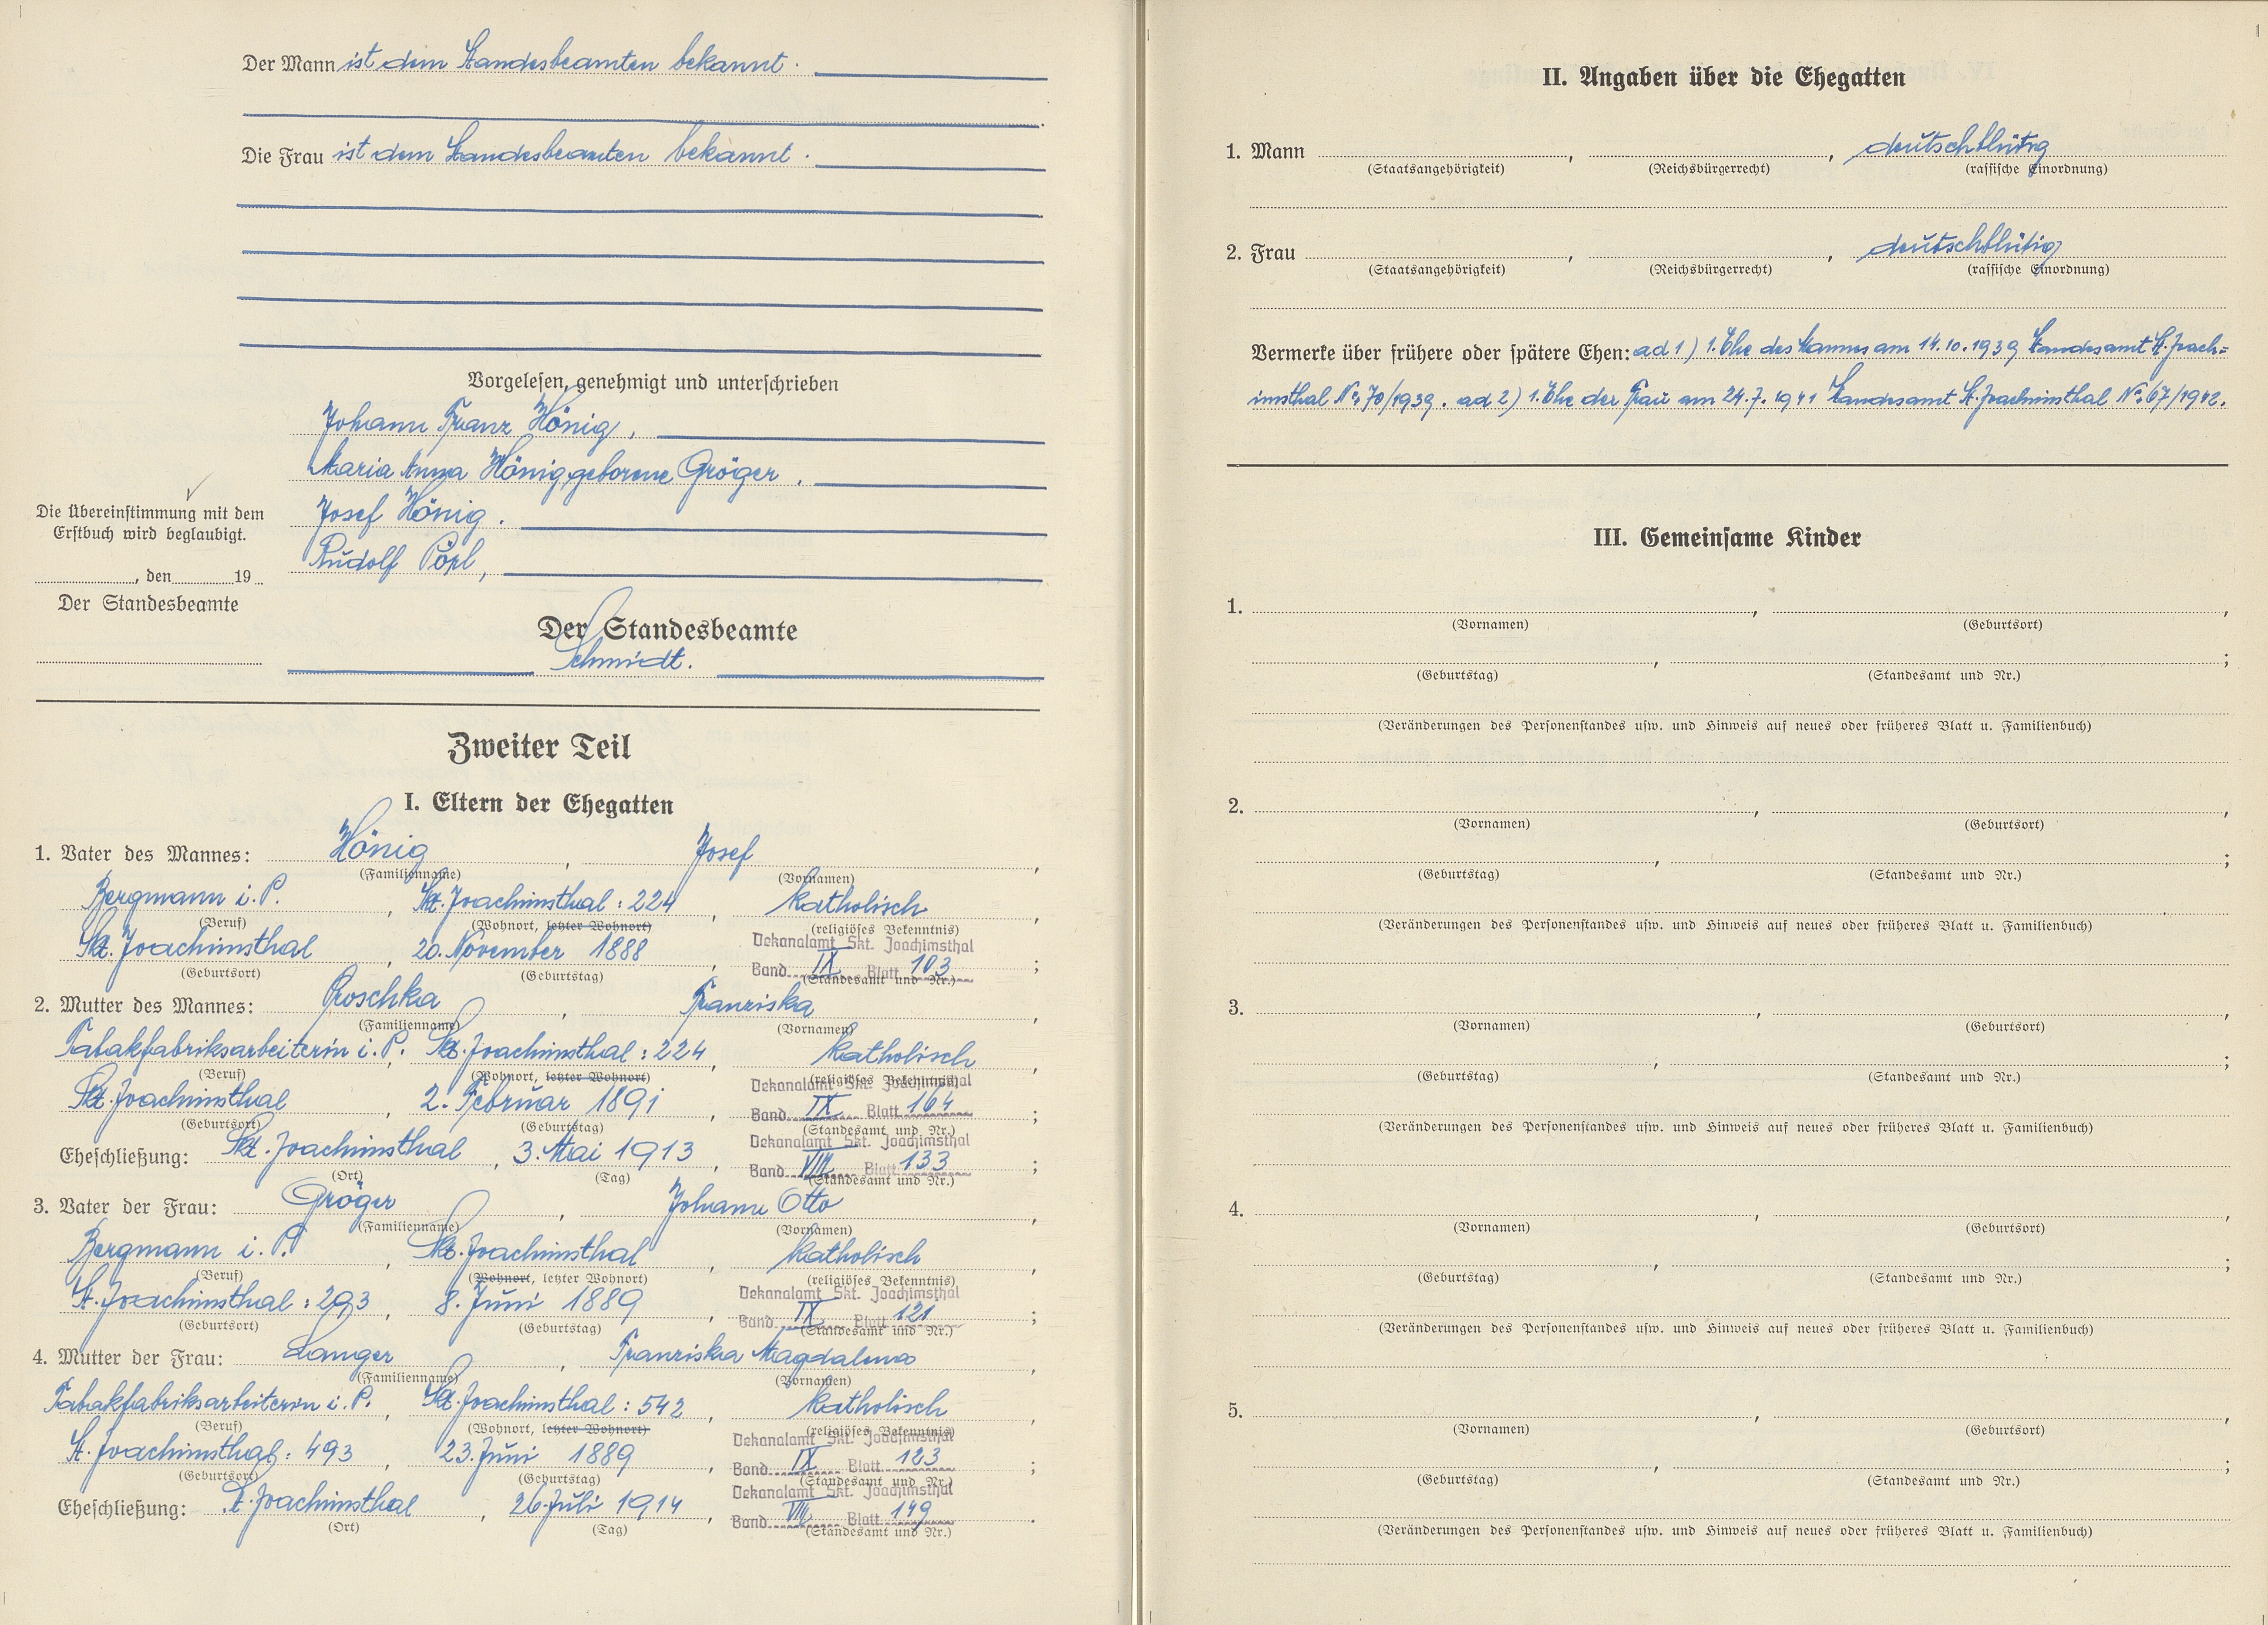 Der Mann ist dem Standesbeamten bekannt.
Die Frau ist dem Standesbeamten bekannt.
Vorgelesen, genehmigt und unterschrieben
Johann Franz Hönig,
Maria Anna Hönig, geborene Gröger.
Josef Hönig.
Rudolf Pöpl,
Die Übereinstimmung mit dem
Erstbuch wird beglaubigt.
, den 19
Der Standesbeamte
Der Standesbeamte
Schmidt.
Zweiter Teil
I. Eltern der Ehegatten
1. Vater des Mannes: Hönig, Josef,
(Familienname) (Vornamen)
Bergmann i. P., Skt. Joachimsthal : 224, katholisch,
(Beruf) (Wohnort, letzter Wohnort) (religiöses Bekenntnis)
Dekanalamt Skt. Joachimsthal
Skt. Joachimsthal, 20. November 1888, Band IX Blatt 103;
(Geburtsort) (Geburtstag) (Standesamt und Nr.)
2. Mutter des Mannes: Poschka, Franziska,
(Familienname) (Vornamen)
Tabakfabriksarbeiterin i. P. Skt. Joachimsthal : 224, katholisch,
(Beruf) (Wohnort, letzter Wohnort) (religiöses Bekenntnis)
Dekanalamt Skt. Joachimsthal
Skt. Joachimsthal, 2. Februar 1891, Band IX Blatt 164;
(Geburtsort) (Geburtstag) (Standesamt und Nr.)
Dekanalamt Skt. Joachimsthal
Eheschließung: Skt. Joachimsthal, 3. Mai 1913, Band VIII Blatt 133;
(Ort) (Tag) (Standesamt und Nr.)
3. Vater der Frau: Gröger, Johann Otto,
(Familienname) (Vornamen)
Bergmann i. P., Skt. Joachimsthal, katholisch,
(Beruf) (Wohnort, letzter Wohnort) (religiöses Bekenntnis)
Dekanalamt Skt. Joachimsthal
St. Joachimsthal : 293, 8. Juni 1889, Band IX Blatt 121;
(Geburtsort) (Geburtstag) (Standesamt und Nr.)
4. Mutter der Frau: Langer, Franziska Magdalena,
(Familienname) (Vornamen)
Tabakfabriksarbeiterin i. P., Skt. Joachimsthal : 542, katholisch,
(Beruf) (Wohnort, letzter Wohnort) (religiöses Bekenntnis)
Dekanalamt Skt. Joachimsthal
St. Joachimsthal : 493, 23. Juni 1889, Band IX Blatt 123;
(Geburtsort) (Geburtstag) (Standesamt und Nr.)
Dekanalamt Skt. Joachimsthal
Eheschließung: St. Joachimsthal, 26. Juli 1914, Band VIII Blatt 149.
(Ort) (Tag) (Standesamt und Nr.)
II. Angaben über die Ehegatten
1. Mann , , deutschblütig
(Staatsangehörigkeit) (Reichsbürgerrecht) (rassische Einordnung)
2. Frau , , deutschblütig
(Staatsangehörigkeit) (Reichsbürgerrecht) (rassische Einordnung)
Vermerke über frühere oder spätere Ehen: ad 1) 1. Ehe des Mannes am 14.10.1939 Standesamt St. Joach=
imsthal No: 70/1939. ad 2) 1. Ehe der Frau am 24.7.1941 Standesamt St. Joachimsthal No: 67/1942.
III. Gemeinsame Kinder
1. , ,
(Vornamen) (Geburtsort)
, ;
(Geburtstag) (Standesamt und Nr.)
(Veränderungen des Personenstandes usw. und Hinweis auf neues oder früheres Blatt u. Familienbuch)
2. , ,
(Vornamen) (Geburtsort)
, ;
(Geburtstag) (Standesamt und Nr.)
(Veränderungen des Personenstandes usw. und Hinweis auf neues oder früheres Blatt u. Familienbuch)
3. , ,
(Vornamen) (Geburtsort)
, ;
(Geburtstag) (Standesamt und Nr.)
(Veränderungen des Personenstandes usw. und Hinweis auf neues oder früheres Blatt u. Familienbuch)
4. , ,
(Vornamen) (Geburtsort)
, ;
(Geburtstag) (Standesamt und Nr.)
(Veränderungen des Personenstandes usw. und Hinweis auf neues oder früheres Blatt u. Familienbuch)
5. , ,
(Vornamen) (Geburtsort)
, ;
(Geburtstag) (Standesamt und Nr.)
(Veränderungen des Personenstandes usw. und Hinweis auf neues oder früheres Blatt u. Familienbuch)